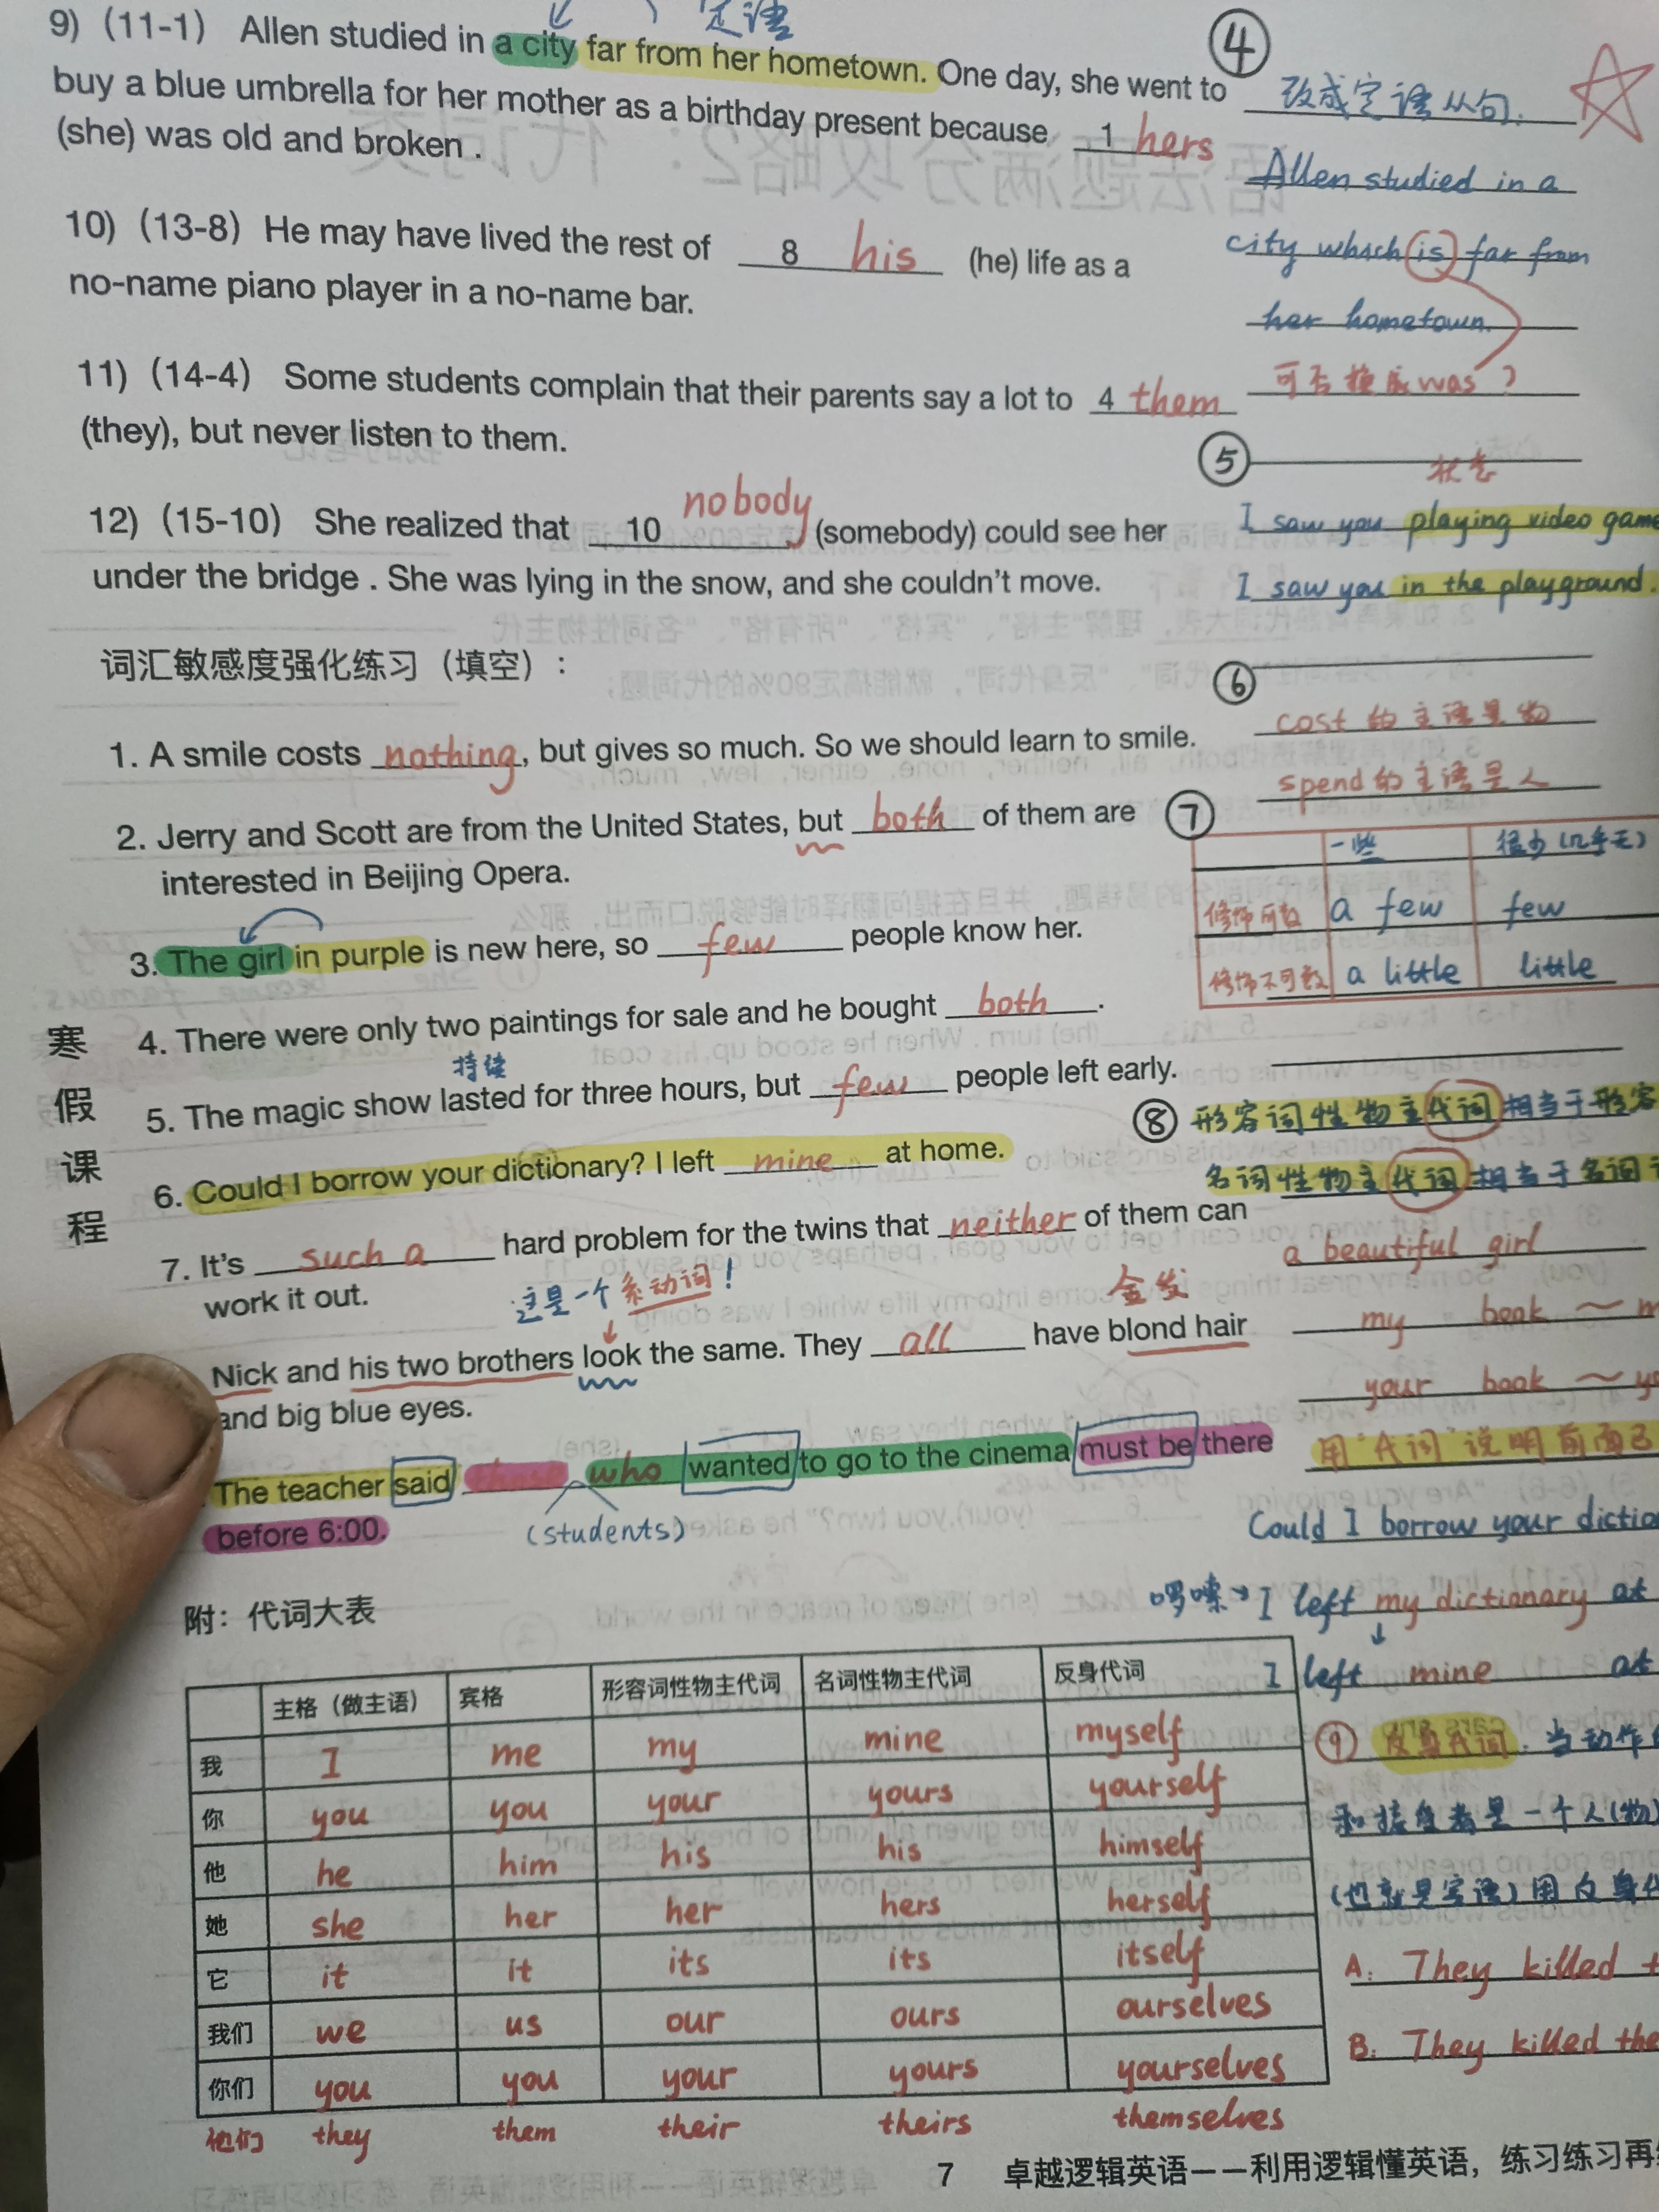 定语
9) (11-1) Allen studied in a city far from her hometown. One day, she went to
buy a blue umbrella for her mother as a birthday present because 1 hers
(she) was old and broken .
10) (13-8) He may have lived the rest of 8 his (he) life as a
no-name piano player in a no-name bar.
11) (14-4) Some students complain that their parents say a lot to 4 them
(they), but never listen to them.
12) (15-10) She realized that 10 nobody (somebody) could see her
under the bridge . She was lying in the snow, and she couldn't move.
词汇敏感度强化练习（填空）：
1. A smile costs nothing, but gives so much. So we should learn to smile.
2. Jerry and Scott are from the United States, but both of them are
interested in Beijing Opera.
3. The girl in purple is new here, so few people know her.
4. There were only two paintings for sale and he bought both.
持续
5. The magic show lasted for three hours, but few people left early.
6. Could I borrow your dictionary? I left mine at home.
7. It's such a hard problem for the twins that neither of them can
work it out.
这是一个系动词！
金发
Nick and his two brothers look the same. They all have blond hair
and big blue eyes.
The teacher said those who wanted to go to the cinema must be there
before 6:00.
(students)
寒假课程
附：代词大表
主格（做主语） 宾格 形容词性物主代词 名词性物主代词 反身代词
我 I me my mine myself
你 you you your yours yourself
他 he him his his himself
她 she her her hers herself
它 it it its its itself
我们 we us our ours ourselves
你们 you you your yours yourselves
他们 they them their theirs themselves
④
改成定语从句.
Allen studied in a
city which is far from
her hometown.
可否换成was？
⑤
状态
I saw you playing video game
I saw you in the playground.
⑥
cost的主语是物
spend的主语是人
⑦
一些 很少(几乎无)
修饰可数 a few few
修饰不可数 a little little
⑧ 形容词性物主代词相当于形容
名词性物主代词相当于名词
a beautiful girl
my book ~ m
your book ~ yo
用"代词"说明前面已
Could I borrow your dictio
啰嗦 I left my dictionary at
I left mine at
⑨ 反身代词. 当动作
和接受者是一个人(物)
(也就是宾语)用反身代
A: They killed t
B: They killed the
7 卓越逻辑英语——利用逻辑懂英语，练习练习再